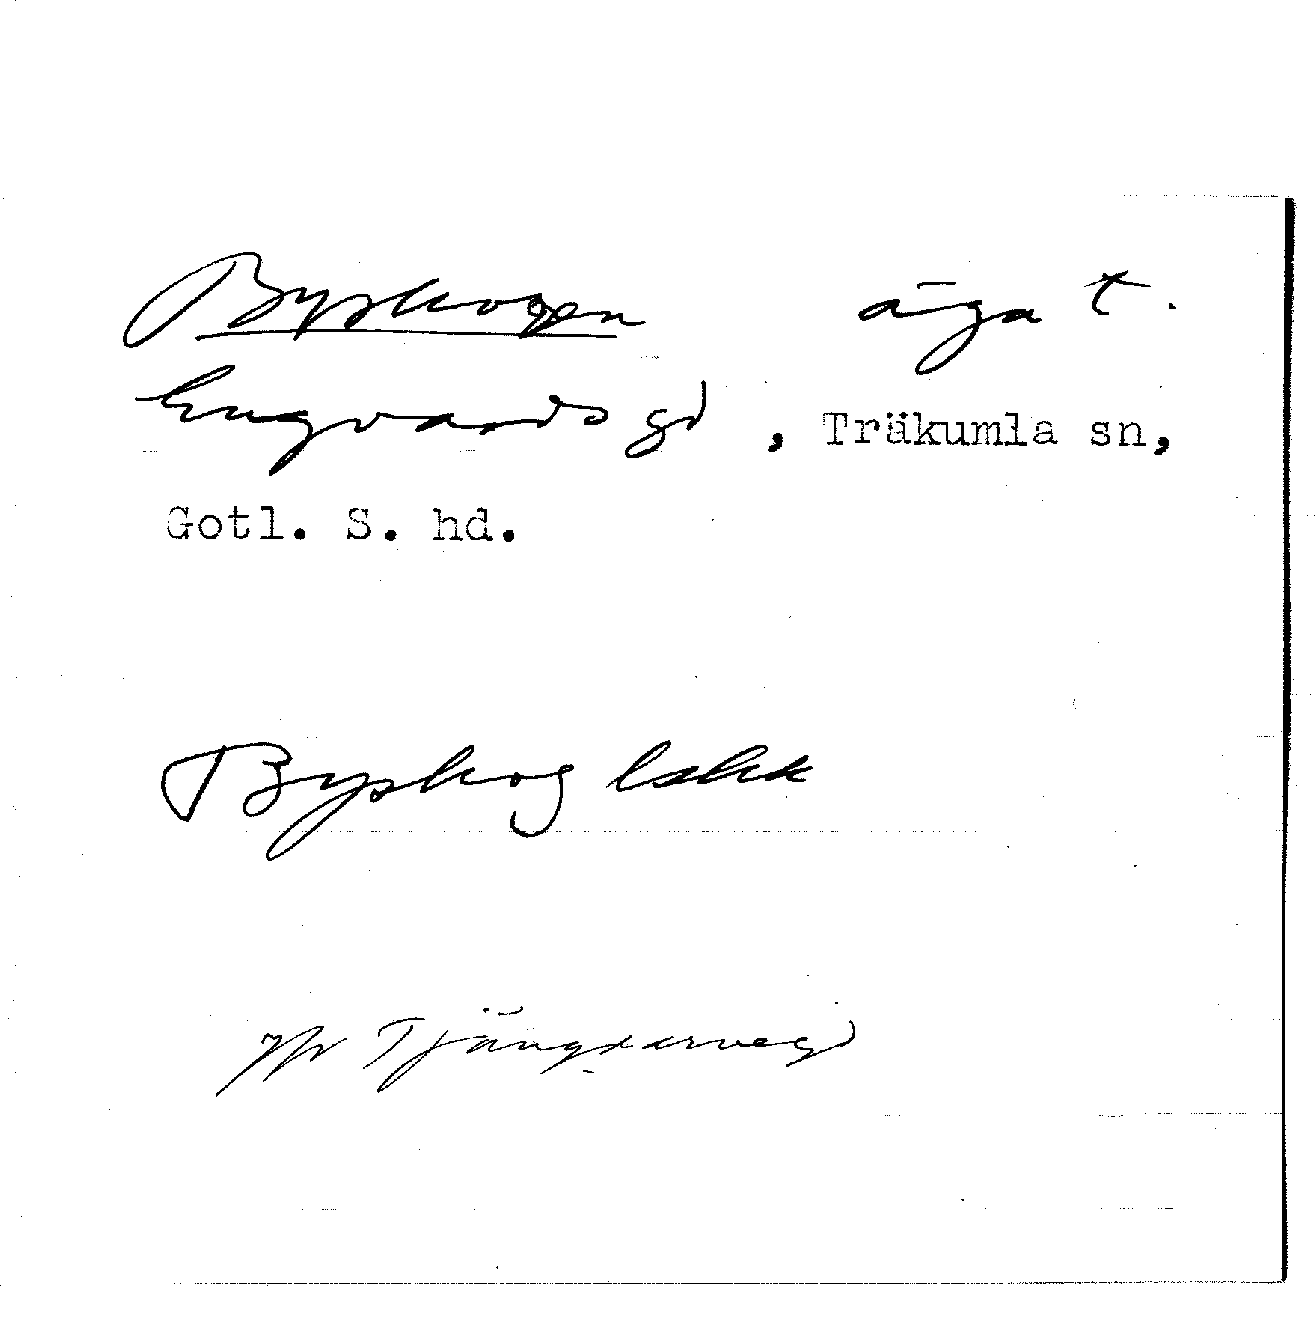 Byskogen äga t.
Ingvards gd, Träkumla sn,
Gotl. S. hd.
Byskog lskk
Hr Tjängdarveg